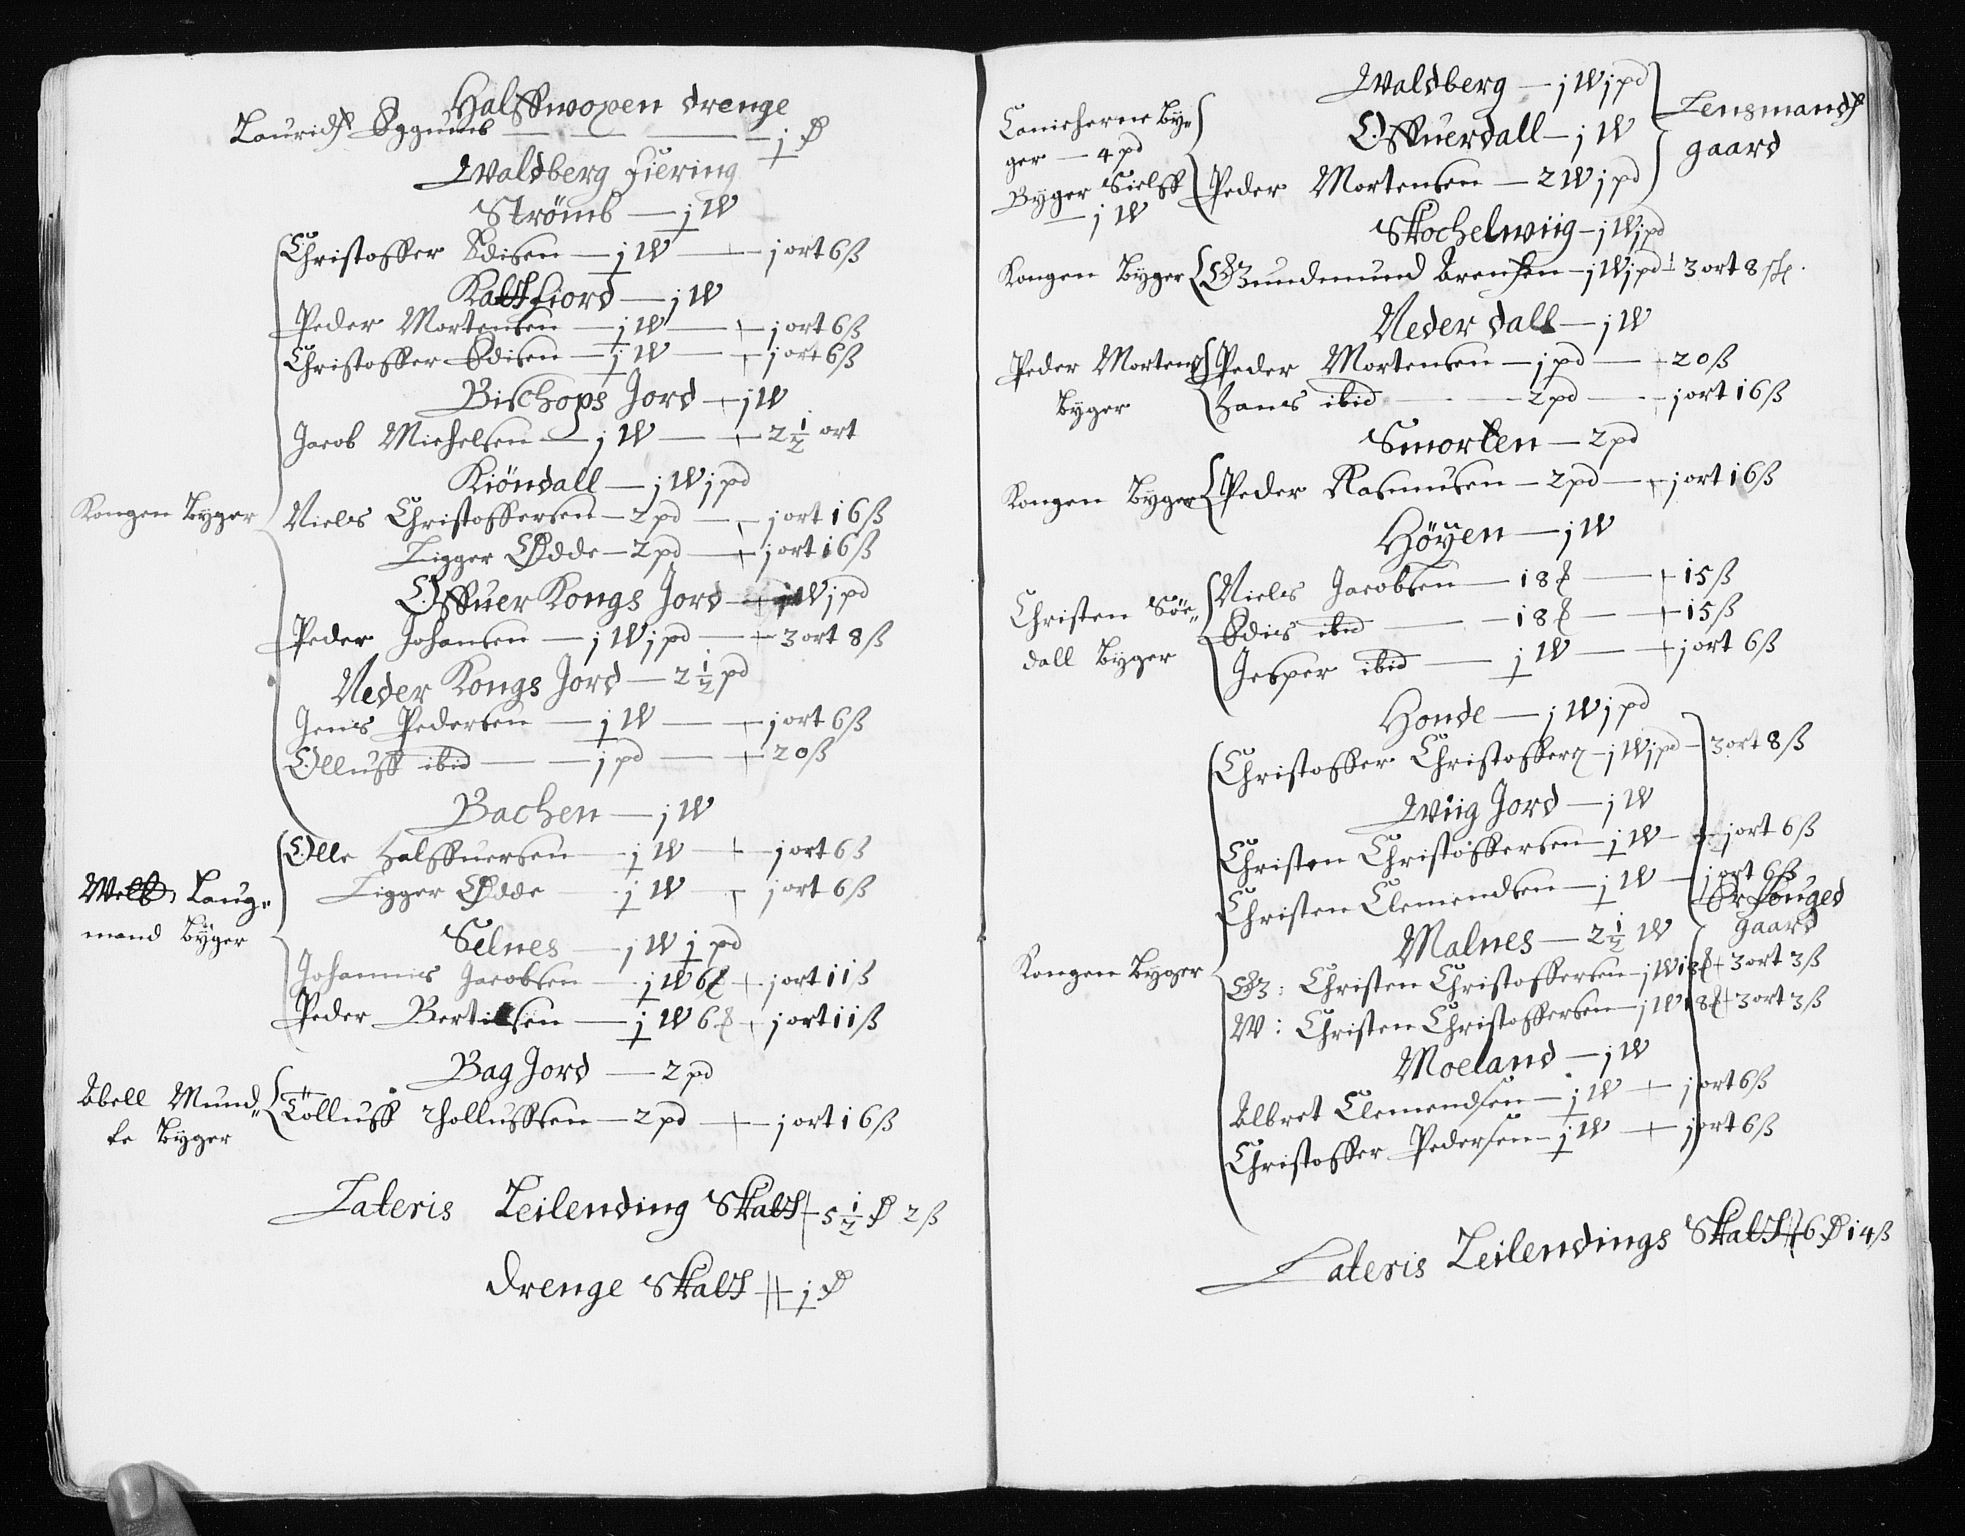 Halffwoxen drenge
Lauridtz Eggums — — — j D
Waldberg fiering
Strömb — j W
Christoffer Edisen — j W — jort 6 ß
Kaltfiord — j W
Peder Mortensen — j W — jort 6 ß
Christoffer Edisen — j W — jort 6 ß
Bischops Jord — j W
Jacob Michelsen — j W — 2 1/2 ort
Kiöndall — j W j pd
Kongen Byger
Niels Christoffersen — 2 pd — jort 16 ß
Ligger Ödde — 2 pd — jort 16 ß
Offuer Kongs Jord — j W j pd
Peder Johansen — j W j pd — 3 ort 8 ß
Neder Kongs Jord — 2 1/2 pd
Jens Pedersen — j W — jort 6 ß
Olluff ibid — j pd — 20 ß
Bachen — j W
Olle Halffuersen — j W — jort 6 ß
Laug-
mand Byger
Ligger Ödde — j W — jort 6 ß
Selnes — j W j pd
Johannis Jacobsen — j W 6 — jort 11 ß
Peder Bertilsen — j W 6 — jort 11 ß
Bag Jord — 2 pd
Abell Mund-
ke Byger
Tolluff Thollufsen — 2 pd — jort 16 ß
Lateris Leilending Skatt 5 1/2 D 2 ß
Drenge Skatt j D
Waldberg — j W j pd
Canicherne By-
ger — 4 pd
Offuerdall — j W
Lensmandtz
gaard
Byger Sielff
— j W
Peder Mortensen — 2 W j pd
Skochelwiig — j W j pd
Kongen Byger Gundmund Arensen — j W j pd 3 ort 8
Neder dall — j W
Peder Mortens
Byger
Peder Mortensen — j pd — 20 ß
Hans ibid — 2 pd — jort 16 ß
Smorten — 2 pd
Kongen Byger Peder Rasmusen — 2 pd — jort 16 ß
Höyen — j W
Christen Söe-
dall Byger
Niels Jacobsen — 18 — 15 ß
Edis ibid — 18 — 15 ß
Jesper ibid — j W — jort 6 ß
Honde — j W j pd
Christoffer Christoffer — j W j pd — 3 ort 8 ß
Wiig Jord — j W
Christen Christoffersen — j W — jort 6 ß
Christen Clemendsen — j W — jort 6 ß
gaard
Malnes — 2 1/2 W
Kongen Byger
Christen Christoffersen — j W 18 3 ort 3 ß
W: Christen Christoffersen — j W 18 3 ort 3 ß
Moeland — j W
Albret Clemendsen — j W — jort 6 ß
Christoffer Pedersen — j W — jort 6 ß
Lateris Leilendings Skatt 6 D 14 ß